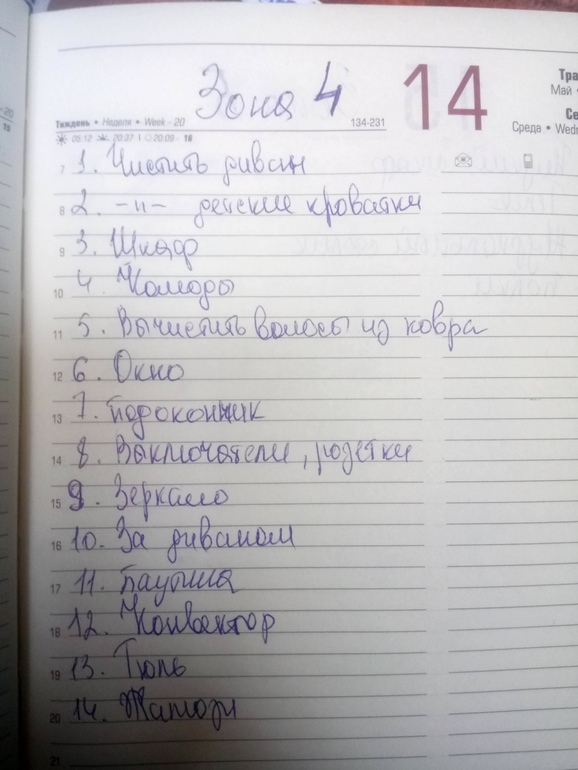 Зона 4
14
Тра
Май •
Тиждень • Неделя • Week - 20
134-231
Се
Среда • Wedn
05:12 20:37 20:09 - 18
7 1. Чистить диван
8 2. -и- детские кроватки
9 3. Шкаф
10 4. Комоды
11 5. Вычистить волосы из ковра
12 6. Окно
13 7. Подоконник
14 8. Выключатели, розетки
15 9. Зеркало
16 10. За диваном
17 11. Паутина
18 12. Конвектор
19 13. Тюль
20 14. Жалюзи
21